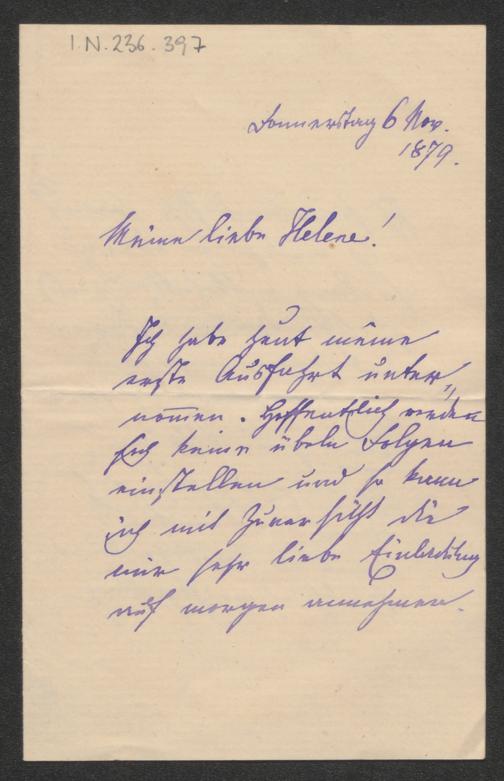 I.N. 236.397
Donnerstag 6 Nov.
1879.
Meine liebe Helene!
Ich habe heut meine
erste Ausfahrt unter„
nom̄en. Hoffentlich werden
sich keine übeln Folgen
einstellen und so kann
ich mit Zuversicht die
mir sehr liebe Einladung
auf morgen annehmen.